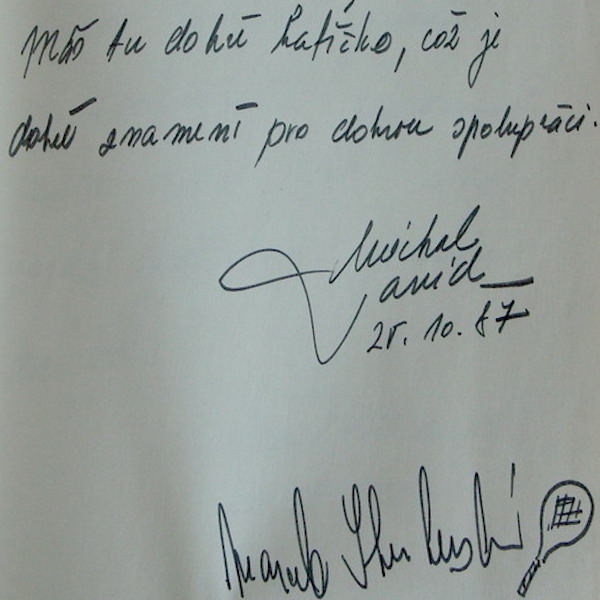 Máš tu dobré kafíčko, což je
dobré znamení pro dobrou spolupráci.
Michal
David
25. 10. 87
Marcela Skuherská